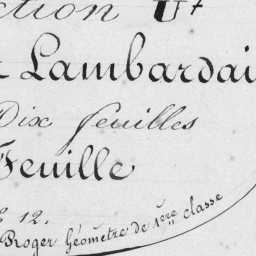 ction U.t
Lambardai
Dix feuilles
Feuille
12.
Proger Géomètre de 1ère classe